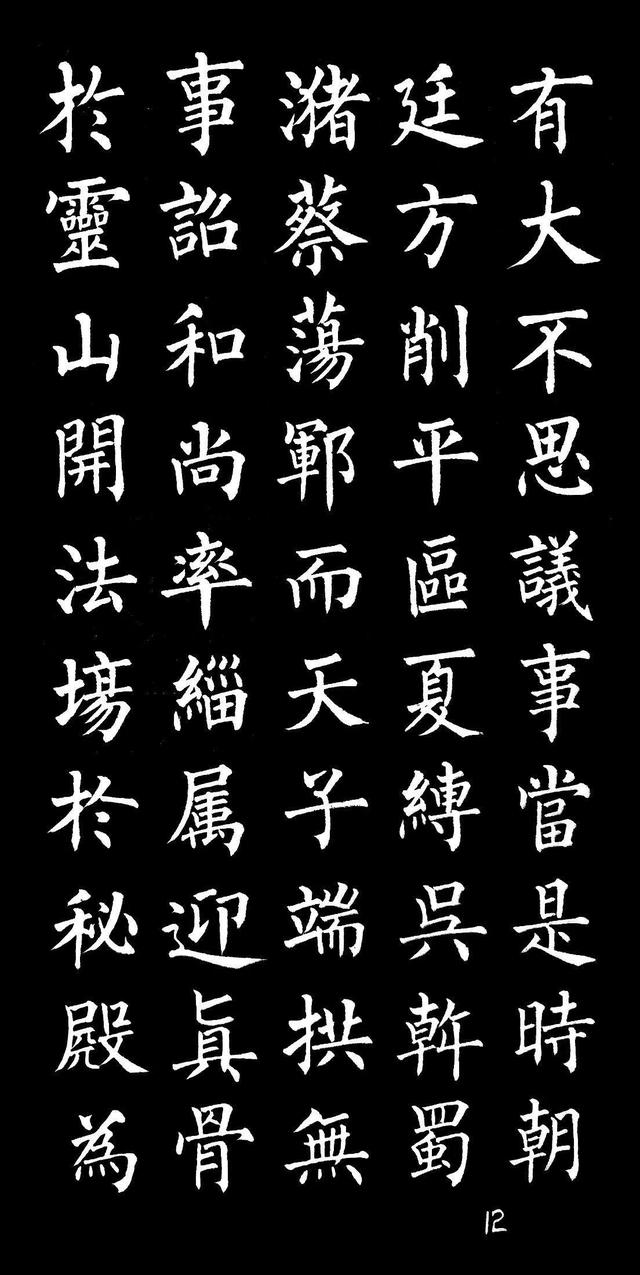 有大不思議事當是時朝
廷方削平區夏縛吳斡蜀
瀦蔡蕩鄆而天子端拱無
事詔和尚率緇属迎真骨
於靈山開法場於秘殿為
12